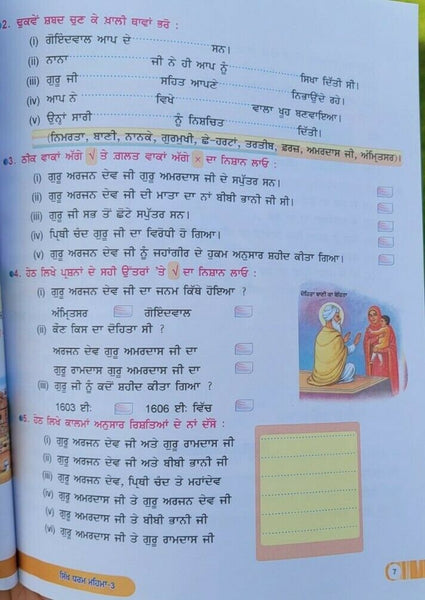 2. ਢੁਕਵੇਂ ਸ਼ਬਦ ਚੁਣ ਕੇ ਖ਼ਾਲੀ ਥਾਵਾਂ ਭਰੋ :
(i) ਗੋਇੰਦਵਾਲ ਆਪ ਦੇ ਸਨ।
(ii) ਨਾਨਾ ਜੀ ਨੇ ਹੀ ਆਪ ਨੂੰ ਸਿਖਾ ਦਿੱਤੀ ਸੀ।
(iii) ਗੁਰੂ ਜੀ ਸਹਿਤ ਆਪਣੇ ਨਿਭਾਉਂਦੇ ਰਹੇ।
(iv) ਆਪ ਨੇ ਵਿਖੇ ਵਾਲਾ ਖੂਹ ਬਣਵਾਇਆ।
(v) ਉਨ੍ਹਾਂ ਸਾਰੀ ਨੂੰ ਨਿਸ਼ਚਿਤ ਦਿੱਤੀ।
(ਨਿਮਰਤਾ, ਬਾਣੀ, ਨਾਨਕੇ, ਗੁਰਮੁਖੀ, ਛੇ-ਹਰਟਾਂ, ਤਰਤੀਬ, ਫ਼ਰਜ਼, ਅਮਰਦਾਸ ਜੀ, ਅੰਮ੍ਰਿਤਸਰ)।
3. ਠੀਕ ਵਾਕਾਂ ਅੱਗੇ √ ਤੇ ਗ਼ਲਤ ਵਾਕਾਂ ਅੱਗੇ × ਦਾ ਨਿਸ਼ਾਨ ਲਾਓ :
(i) ਗੁਰੂ ਅਰਜਨ ਦੇਵ ਜੀ ਗੁਰੂ ਅਮਰਦਾਸ ਜੀ ਦੇ ਸਪੁੱਤਰ ਸਨ।
(ii) ਗੁਰੂ ਅਰਜਨ ਦੇਵ ਜੀ ਦੀ ਮਾਤਾ ਦਾ ਨਾਂ ਬੀਬੀ ਭਾਨੀ ਜੀ ਸੀ।
(iii) ਗੁਰੂ ਜੀ ਸਭ ਤੋਂ ਛੋਟੇ ਸਪੁੱਤਰ ਸਨ।
(iv) ਪ੍ਰਿਥੀ ਚੰਦ ਗੁਰੂ ਜੀ ਦਾ ਵਿਰੋਧੀ ਹੋ ਗਿਆ।
(v) ਗੁਰੂ ਅਰਜਨ ਦੇਵ ਜੀ ਨੂੰ ਜਹਾਂਗੀਰ ਦੇ ਹੁਕਮ ਅਨੁਸਾਰ ਸ਼ਹੀਦ ਕੀਤਾ ਗਿਆ।
4. ਹੇਠ ਲਿਖੇ ਪ੍ਰਸ਼ਨਾਂ ਦੇ ਸਹੀ ਉੱਤਰਾਂ 'ਤੇ √ ਦਾ ਨਿਸ਼ਾਨ ਲਾਓ :
(i) ਗੁਰੂ ਅਰਜਨ ਦੇਵ ਜੀ ਦਾ ਜਨਮ ਕਿੱਥੇ ਹੋਇਆ ?
ਅੰਮ੍ਰਿਤਸਰ ਗੋਇੰਦਵਾਲ
(ii) ਕੌਣ ਕਿਸ ਦਾ ਦੋਹਿਤਾ ਸੀ ?
ਅਰਜਨ ਦੇਵ ਗੁਰੂ ਅਮਰਦਾਸ ਜੀ ਦਾ
ਗੁਰੂ ਰਾਮਦਾਸ ਗੁਰੂ ਅਮਰਦਾਸ ਜੀ ਦਾ
(iii) ਗੁਰੂ ਜੀ ਨੂੰ ਕਦੋਂ ਸ਼ਹੀਦ ਕੀਤਾ ਗਿਆ ?
1603 ਈ: 1606 ਈ: ਵਿੱਚ
ਦੋਹਿਤਾ ਬਾਣੀ ਕਾ ਬੋਹਿਤਾ
5. ਹੇਠ ਲਿਖੇ ਕਾਲਮਾਂ ਅਨੁਸਾਰ ਰਿਸ਼ਤਿਆਂ ਦੇ ਨਾਂ ਦੱਸੋ :
(i) ਗੁਰੂ ਅਰਜਨ ਦੇਵ ਜੀ ਅਤੇ ਗੁਰੂ ਰਾਮਦਾਸ ਜੀ
(ii) ਗੁਰੂ ਅਰਜਨ ਦੇਵ ਜੀ ਅਤੇ ਬੀਬੀ ਭਾਨੀ ਜੀ
(iii) ਗੁਰੂ ਅਰਜਨ ਦੇਵ, ਪ੍ਰਿਥੀ ਚੰਦ ਤੇ ਮਹਾਂਦੇਵ
(iv) ਗੁਰੂ ਅਮਰਦਾਸ ਜੀ ਤੇ ਗੁਰੂ ਅਰਜਨ ਦੇਵ ਜੀ
(v) ਗੁਰੂ ਅਮਰਦਾਸ ਜੀ ਤੇ ਬੀਬੀ ਭਾਨੀ ਜੀ
(vi) ਗੁਰੂ ਅਮਰਦਾਸ ਜੀ ਤੇ ਗੁਰੂ ਰਾਮਦਾਸ ਜੀ
ਸਿੱਖ ਧਰਮ ਮਹਿਮਾ-3
7